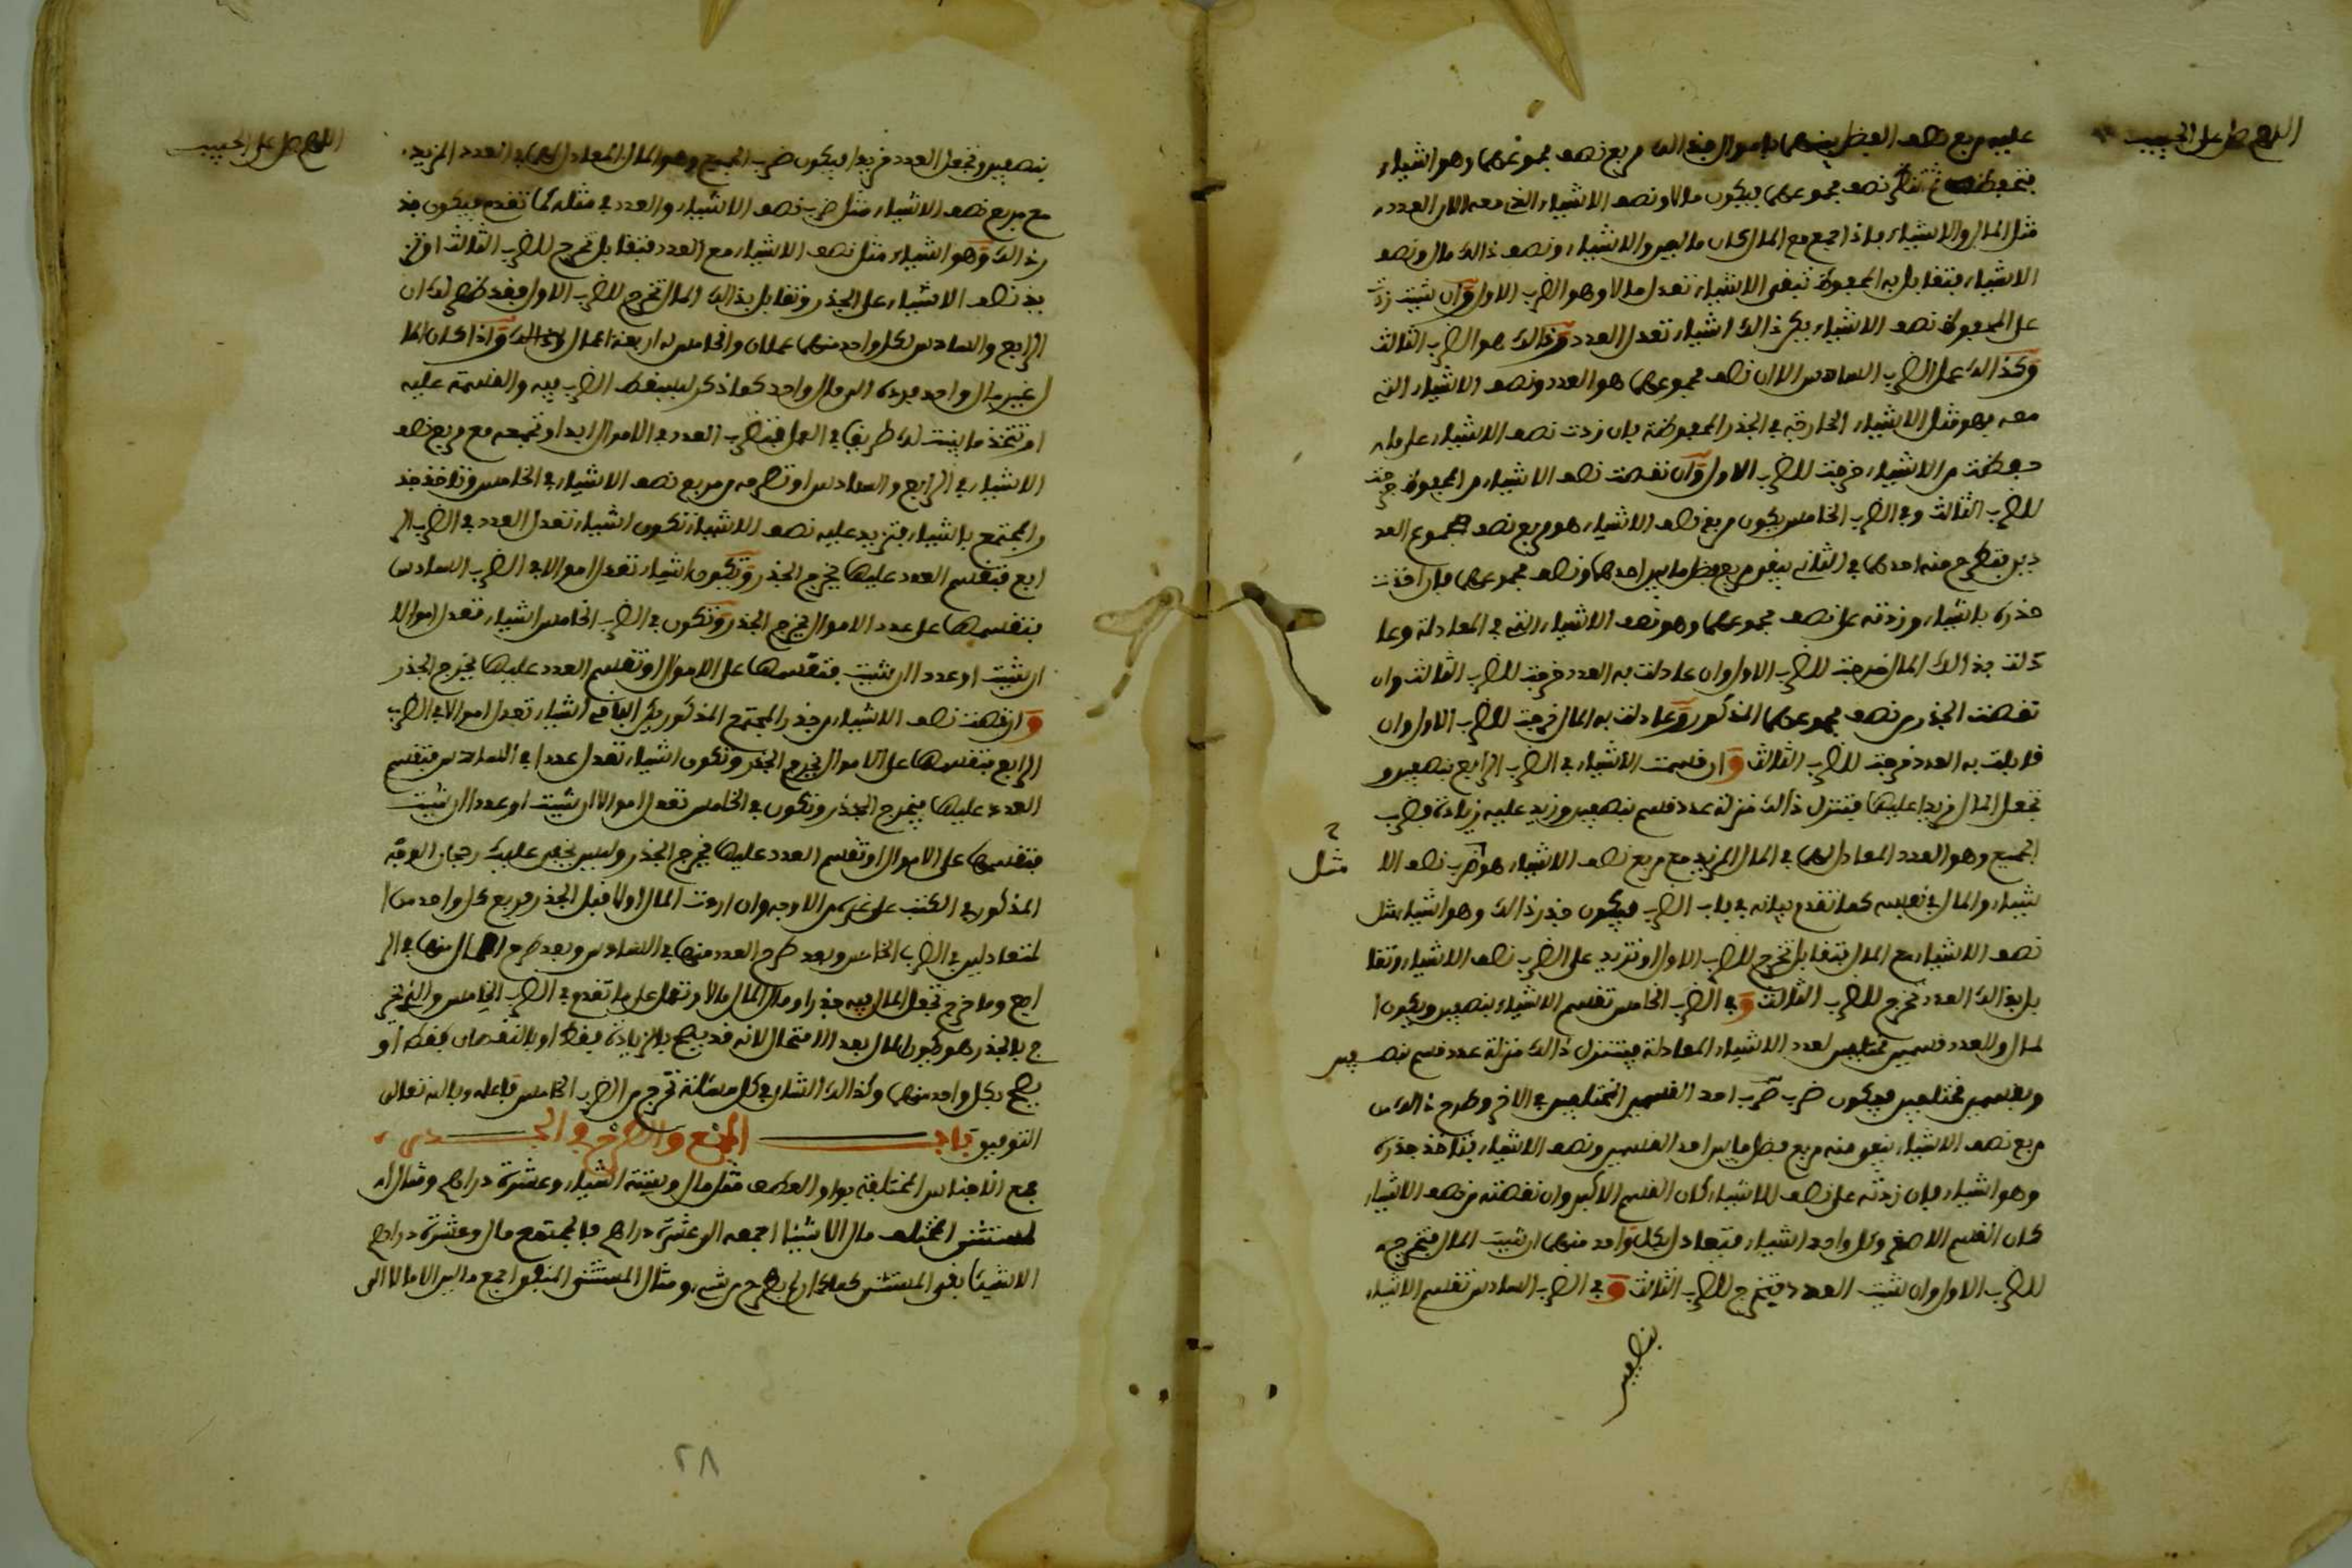 اللهم صل على الحبيب
عليه مربع نصف الفضل بينهما باموال جذر الك مربع نصف مجموعهما وهو اشياء
فتحفظه ثم تنظر نصف مجموعهما فيكون مالا ونصف الاشياء التي معه اذ العدد
مثل المال والاشياء فاذا جمع مع المال كان مالين والاشياء ونصف ذالك مال ونصف
الاشياء فتقابل به المحفوظ تبقى الاشياء تعدل مالا وهو الضرب الاول وان شيت زدت
على المحفوظ نصف الاشياء يكن ذالك اشياء تعدل العدد وذالك هو الضرب الثالث
وكذالك عمل الضرب السادس الا ان نصف مجموعهما هو العدد ونصف الاشياء التي
معه فهو مثل الاشياء الخارجة في الجذر المحفوظة فان زدت نصف الاشياء على ما
حفظت من الاشياء خرجت للضرب الاول وان نقصت نصف الاشياء من المحفوظ خرجت
للضرب الثالث وفي الضرب الخامس يكون مربع نصف الاشياء هو مربع نصف مجموع العد
دين فتطرح منه احدهما في الثاني يبقى مربع فضل ما بين احدهما ونصف مجموعهما فان اخذت
جذره باشياء وزدته على نصف مجموعهما وهو نصف الاشياء التي في المعادلة وعا
دلت بذالك المال خرجت للضرب الاول وان عادلت به العدد خرجت للضرب الثالث وان
نقصت الجذر من نصف مجموعهما المذكور وعادلت به المال خرجت للضرب الاول وان
قابلت به العدد خرجت للضرب الثالث وان قسمت الاشياء في الضرب الرابع بنصفين و
تجعل المال مزيدا عليها فتنزل ذالك منزلة عدد قسم بنصفين وزيد عليه زيادة فضرب
الجميع وهو العدد المعادل لهما في المال المزيد مع مربع نصف الاشياء هو ضرب نصف الا
مثل
شياء والمال في نفسه كما تقدم بيانه في باب الضرب فيكون جذر ذالك وهو اشياء مثل
نصف الاشياء مع المال فتقابل تخرج للضرب الاول او تزيد على الضرب نصف الاشياء وتقا
بل بذالك العدد تخرج للضرب الثالث وفي الضرب الخامس تقسم الاشياء بنصفين ويكون ا
لمال والعدد قسمين مختلفين لعدد الاشياء المعادلة فيتنزل ذالك منزلة عدد قسم بنصفين
وبقسمين مختلفين فيكون ضرب احد القسمين المختلفين في الاخر وطرح ذالك من
مربع نصف الاشياء يبقى منه مربع فضل ما بين احد القسمين ونصف الاشياء فتاخذ جذره
وهو اشياء فان زدته على نصف الاشياء كان القسم الاكبر وان نقصته من نصف الاشياء
كان القسم الاصغر وكل واحد اشياء فتعادل بكل واحد منهما ان شيت المال فتخرج
للضرب الاول وان شيت العدد فتخرج للضرب الثالث وفي الضرب السادس تقسم الاشياء
بنصفين
اللهم صل على الحبيب
بنصفين وتجعل العدد مزيدا فيكون ضرب الجميع وهو المال المعادل لهما في العدد المزيد
مع مربع نصف الاشياء مثل ضرب نصف الاشياء والعدد في مثله كما تقدم فيكون جذ
ر ذالك وهو اشياء مثل نصف الاشياء مع العدد فتقابل تخرج للضرب الثالث او تز
يد نصف الاشياء على الجذر وتقابل بذالك المال تخرج للضرب الاول فقد ظهر لك ان
الرابع والسادس لكل واحد منهما عملان والخامس له اربعة اعمال واذا كان الما
ل غير مال واحد فرده الى مال واحد كما ذكر ليسقط الضرب فيه والقسمة عليه
او تتخذ ما بينت لك طريقا في العمل فتضرب العدد في الاموال ابدا وتجمعه مع مربع نصف
الاشياء في الرابع والسادس او تطرحه من مربع نصف الاشياء في الخامس وتاخذ جذ
ر المجتمع باشياء فتزيد عليه نصف الاشياء تكون اشياء تعدل العدد في الضرب الر
ابع فتقسم العدد عليها يخرج الجذر وتكون اشياء تعدل اموالا في الضرب السادس
فتقسمها على عدد الاموال يخرج الجذر وتكون في الضرب الخامس اشياء تعدل اموالا
ان شيت او عددا ان شيت فتقسمها على الاموال او تقسم العدد عليها يخرج الجذر
وان نقصت نصف الاشياء من جذر المجتمع المذكور يكن الباقي اشياء تعدل اموالا في الضرب
الرابع فتقسمها على الاموال يخرج الجذر وتكون اشياء تعدل عددا في السادس فتقسم
العدد عليها فيخرج الجذر وتكون في الخامس تعدل اموالا ان شيت او عددا ان شيت
فتقسمها على الاموال او تقسم العدد عليها يخرج الجذر وليس يخفى عليك رجحان الوجه
المذكور في الكتب على غيره من الاوجه وان اردت المال اولا قبل الجذر فربع كل واحد من ا
لمتعادلين في الضرب الخامس وبعد طرح العدد منها في السادس وبعد طرح المال منها في الر
ابع وما خرج تجعل المال فيه جذرا ومال المال مالا وتعمل على ما تقدم في الضرب الخامس والذي يخر
ج بالجذر هو يكون المال بعد الامتحان لانه قد يصح بالزيادة فقط او بالنقصان فقط او
يصح بكل واحد منهما وكذالك الشان في كل مسئلة تخرج من الضرب الخامس فاعلم وبالله تعالى
التوفيق باب الجمع والطرح في الجـــــذر
جمع الاجناس المختلفة بواو العطف مثل مال وستة اشياء وعشرة دراهم ومثال ا
لمستثنى المختلف مال الا شيئا اجمعه الى عشرة دراهم فالمجتمع مال وعشرة دراهم
الا شيئا بقى المستثنى كما كان لم يطرح من شيء ومثال المستثنى المتفق اجمع مالين الا مالا الى
٢٨